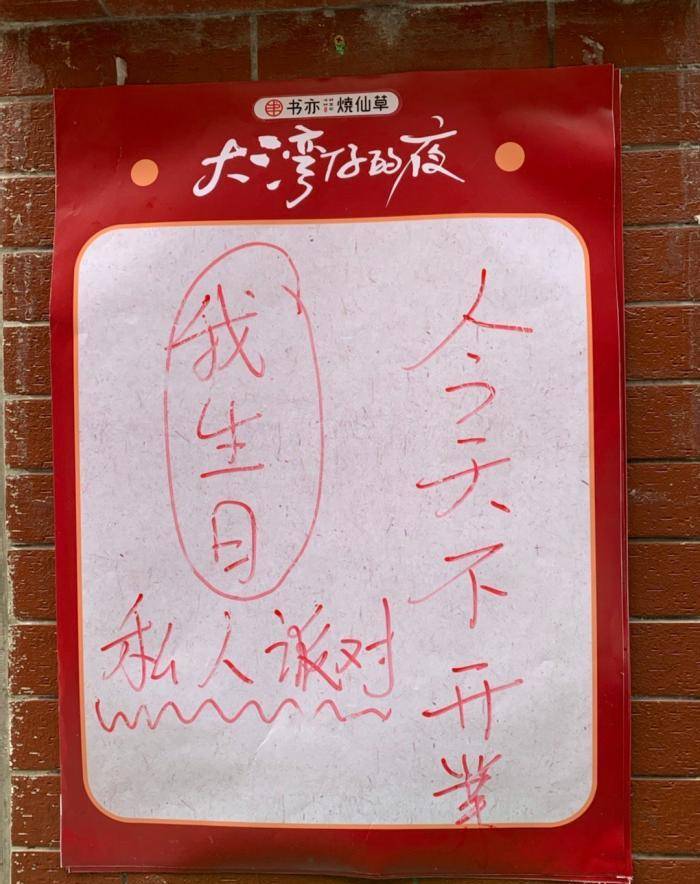 书亦燒仙草
大湾仔的夜
今天不开業
我生日
私人派对